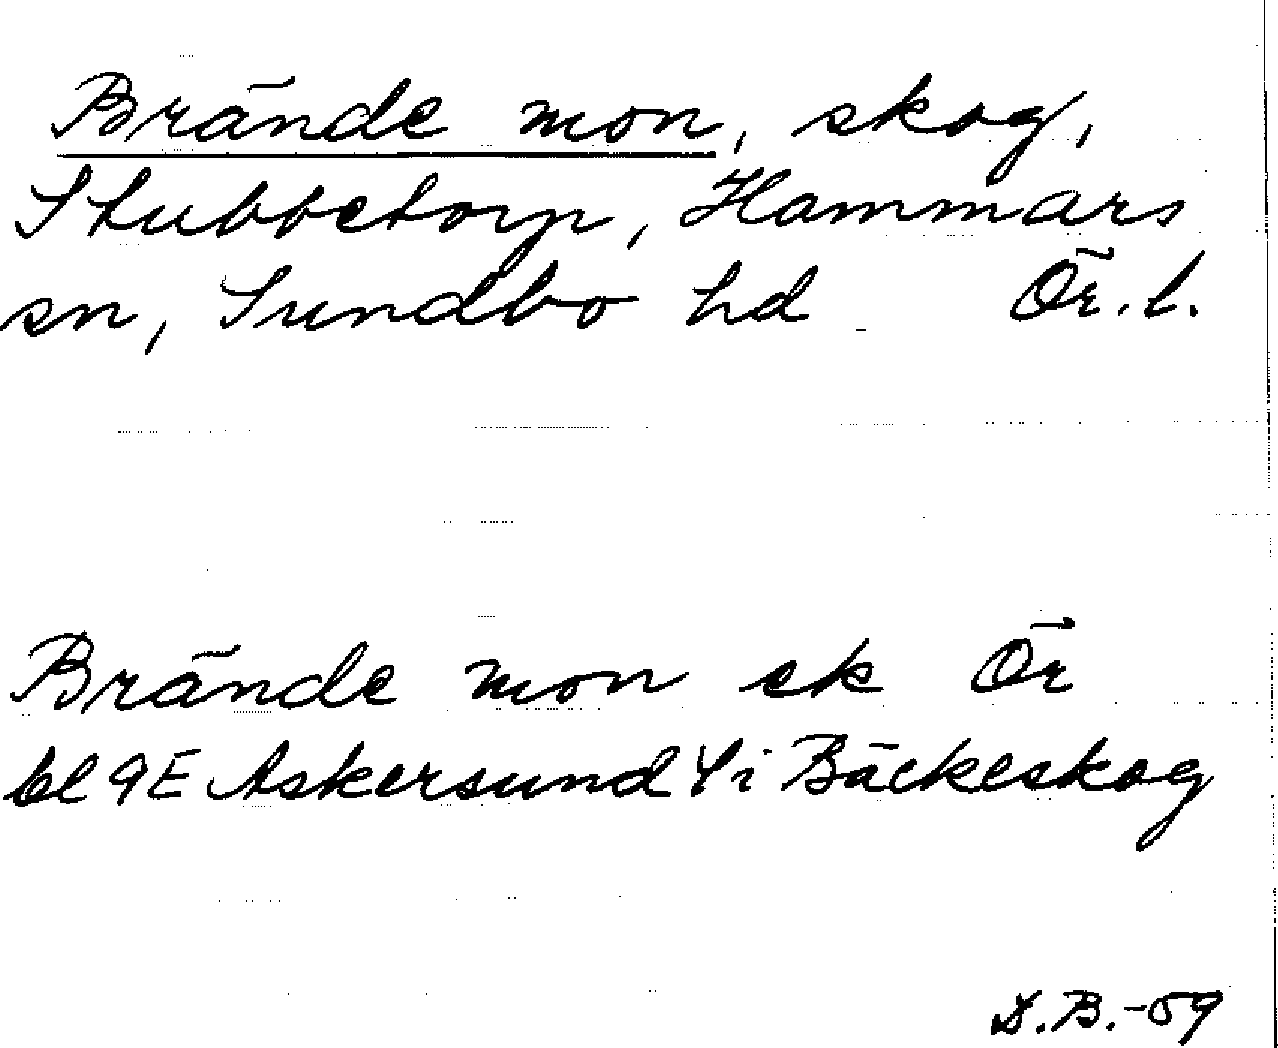 Brände mon, skog,
Stubbetorp, Hammars
sn, Sundbo hd Ör. l.
Brände mon ek Ör
bl 9E Askersund 4i Bäckeskog
D.B.-59